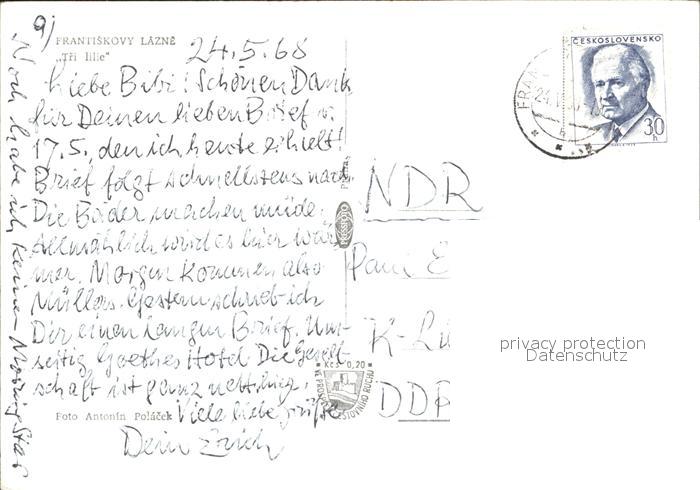 9)
FRANTIŠKOVY LÁZNĚ
„Tři lilie"
24.5.68
Liebe Bibi! Schönen Dank
für Deinen lieben Brief v.
17.5., den ich heute erhielt!
Brief folgt schnellstens nach.
Die Bäder machen müde.
Allmählich wird es hier wär
mer. Morgen kommen also
Müllers. Gestern schrieb ich
Dir einen langen Brief. Um-
seitig Goethes Hotel. Die Gesell-
schaft ist ganz nett hier.
Viele liebe Grüße
Dein
Noch habe ich keinen
Foto Antonín Poláček
ČESKOSLOVENSKO
30
h
24.
Kčs 0,20
NDR
Paul E
K-L
DDR
privacy protection
Datenschutz